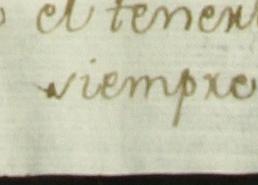 el tener
siempre